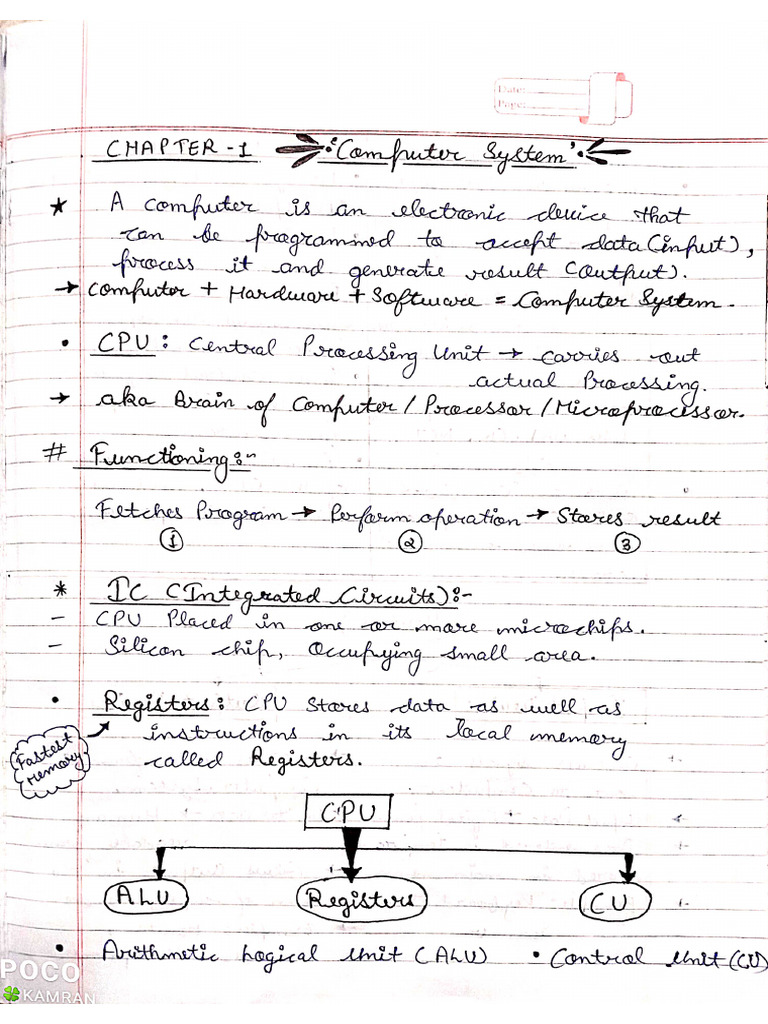 Date:
Page:
CHAPTER-1 "Computer System"
★ A computer is an electronic device that
can be programmed to accept data (input),
process it and generate result (output).
→ Computer + Hardware + Software = Computer System.
• CPU: Central Processing Unit → carries out
actual Processing.
→ aka Brain of Computer / Processor / Microprocessor.
# Functioning:-
Fetches Program → Perform operation → Stores result
① ② ③
* IC (Integrated Circuits):-
- CPU Placed in one or more microchips.
- Silicon chip, Occupying small area.
• Registers: CPU stores data as well as
instructions in its local memory
called Registers.
Fastest
Memory
CPU
ALU Registers CU
• Arithmetic Logical Unit (ALU) • Control Unit (CU)
POCO
KAMRAN